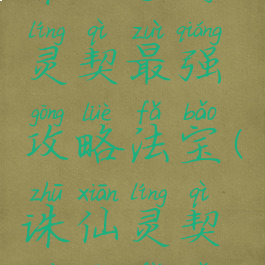 líng qì zuì qiáng
灵契最强
gōng lüè fǎ bǎo
攻略法宝(
zhū xiān líng qì
诛仙灵契